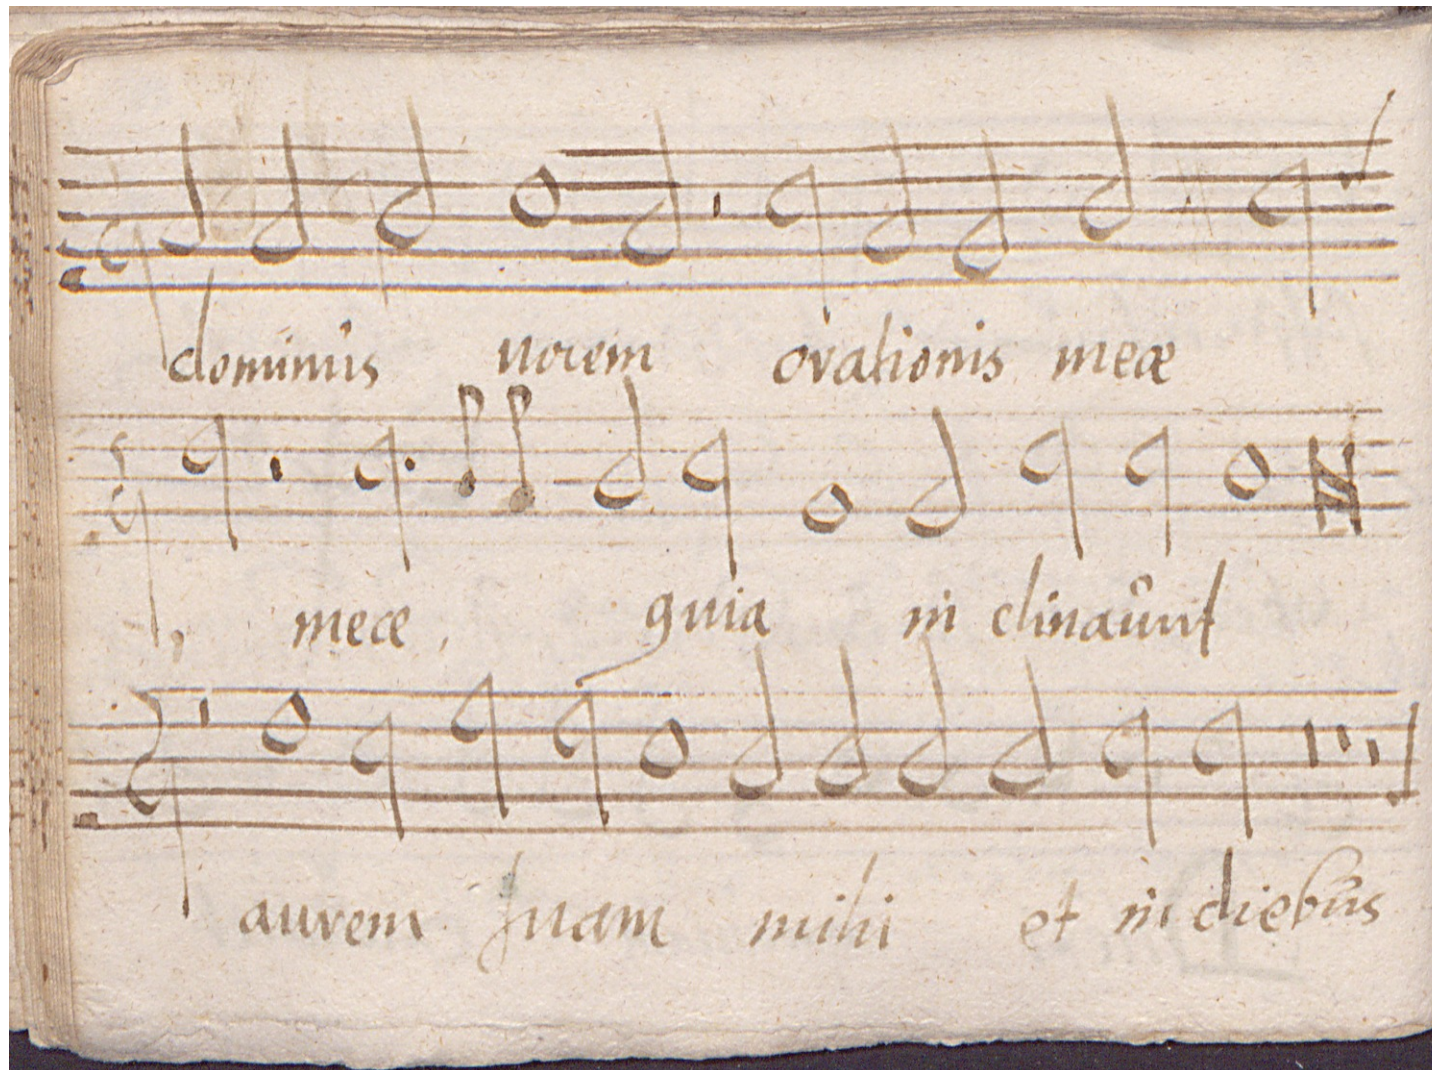 dominus vocem orationis meæ
meæ quia in clinauit
aurem suam mihi et in diebus